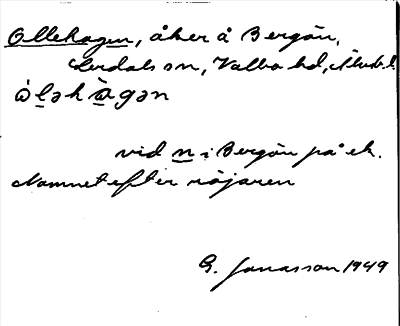 Ollehagen, åker å Bergän,
Lerdals sn, Valbo hd, Älvsb. l.
ò̀l̲əhà̲gən
vid n i Bergän på ek.
Namnet efter röjaren
G. Jonasson 1949